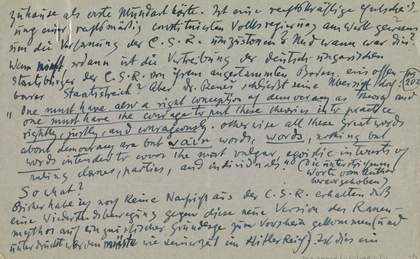 zuhause als erste Mundart hörte. Ist eine rechtskräftige Entschei-
dung einer rechtmässig constituierten Volksregierung
um die Verfassung der C.S.R. umzustossen? Und wann war dies?
Wenn nicht, sodann ist die Vertreibung der deutsch-ungarischen
Staatsbürger der C.S.R. von ihrem angestammten Boden, ein offen-
barer Staatsstreich? Aber Dr. Benes schliesst seine
"One must have also a right conception of democracy as theory and
one must have the courage to put these theories into practice
rightly, justly, and courageously. otherwise all these great words
about democracy are but words, words, nothing but
words intended to cover the most vulgar, egoistic interests of
ruling classes, parties, and individuals" (Die unterstrichenen
Worte vom Author hervorgehoben)
So what?
Bisher habe ich noch keine aus der C.S.R. erhalten, dass
eine Widerstandsbewegung gegen diese neue Version des Rassen-
mythos auf linguistischer Grundlage zum Vorschein gekommen (und
unterdrückt werden müsste wie seinerzeit im Hitler Reich). Ist dies ein